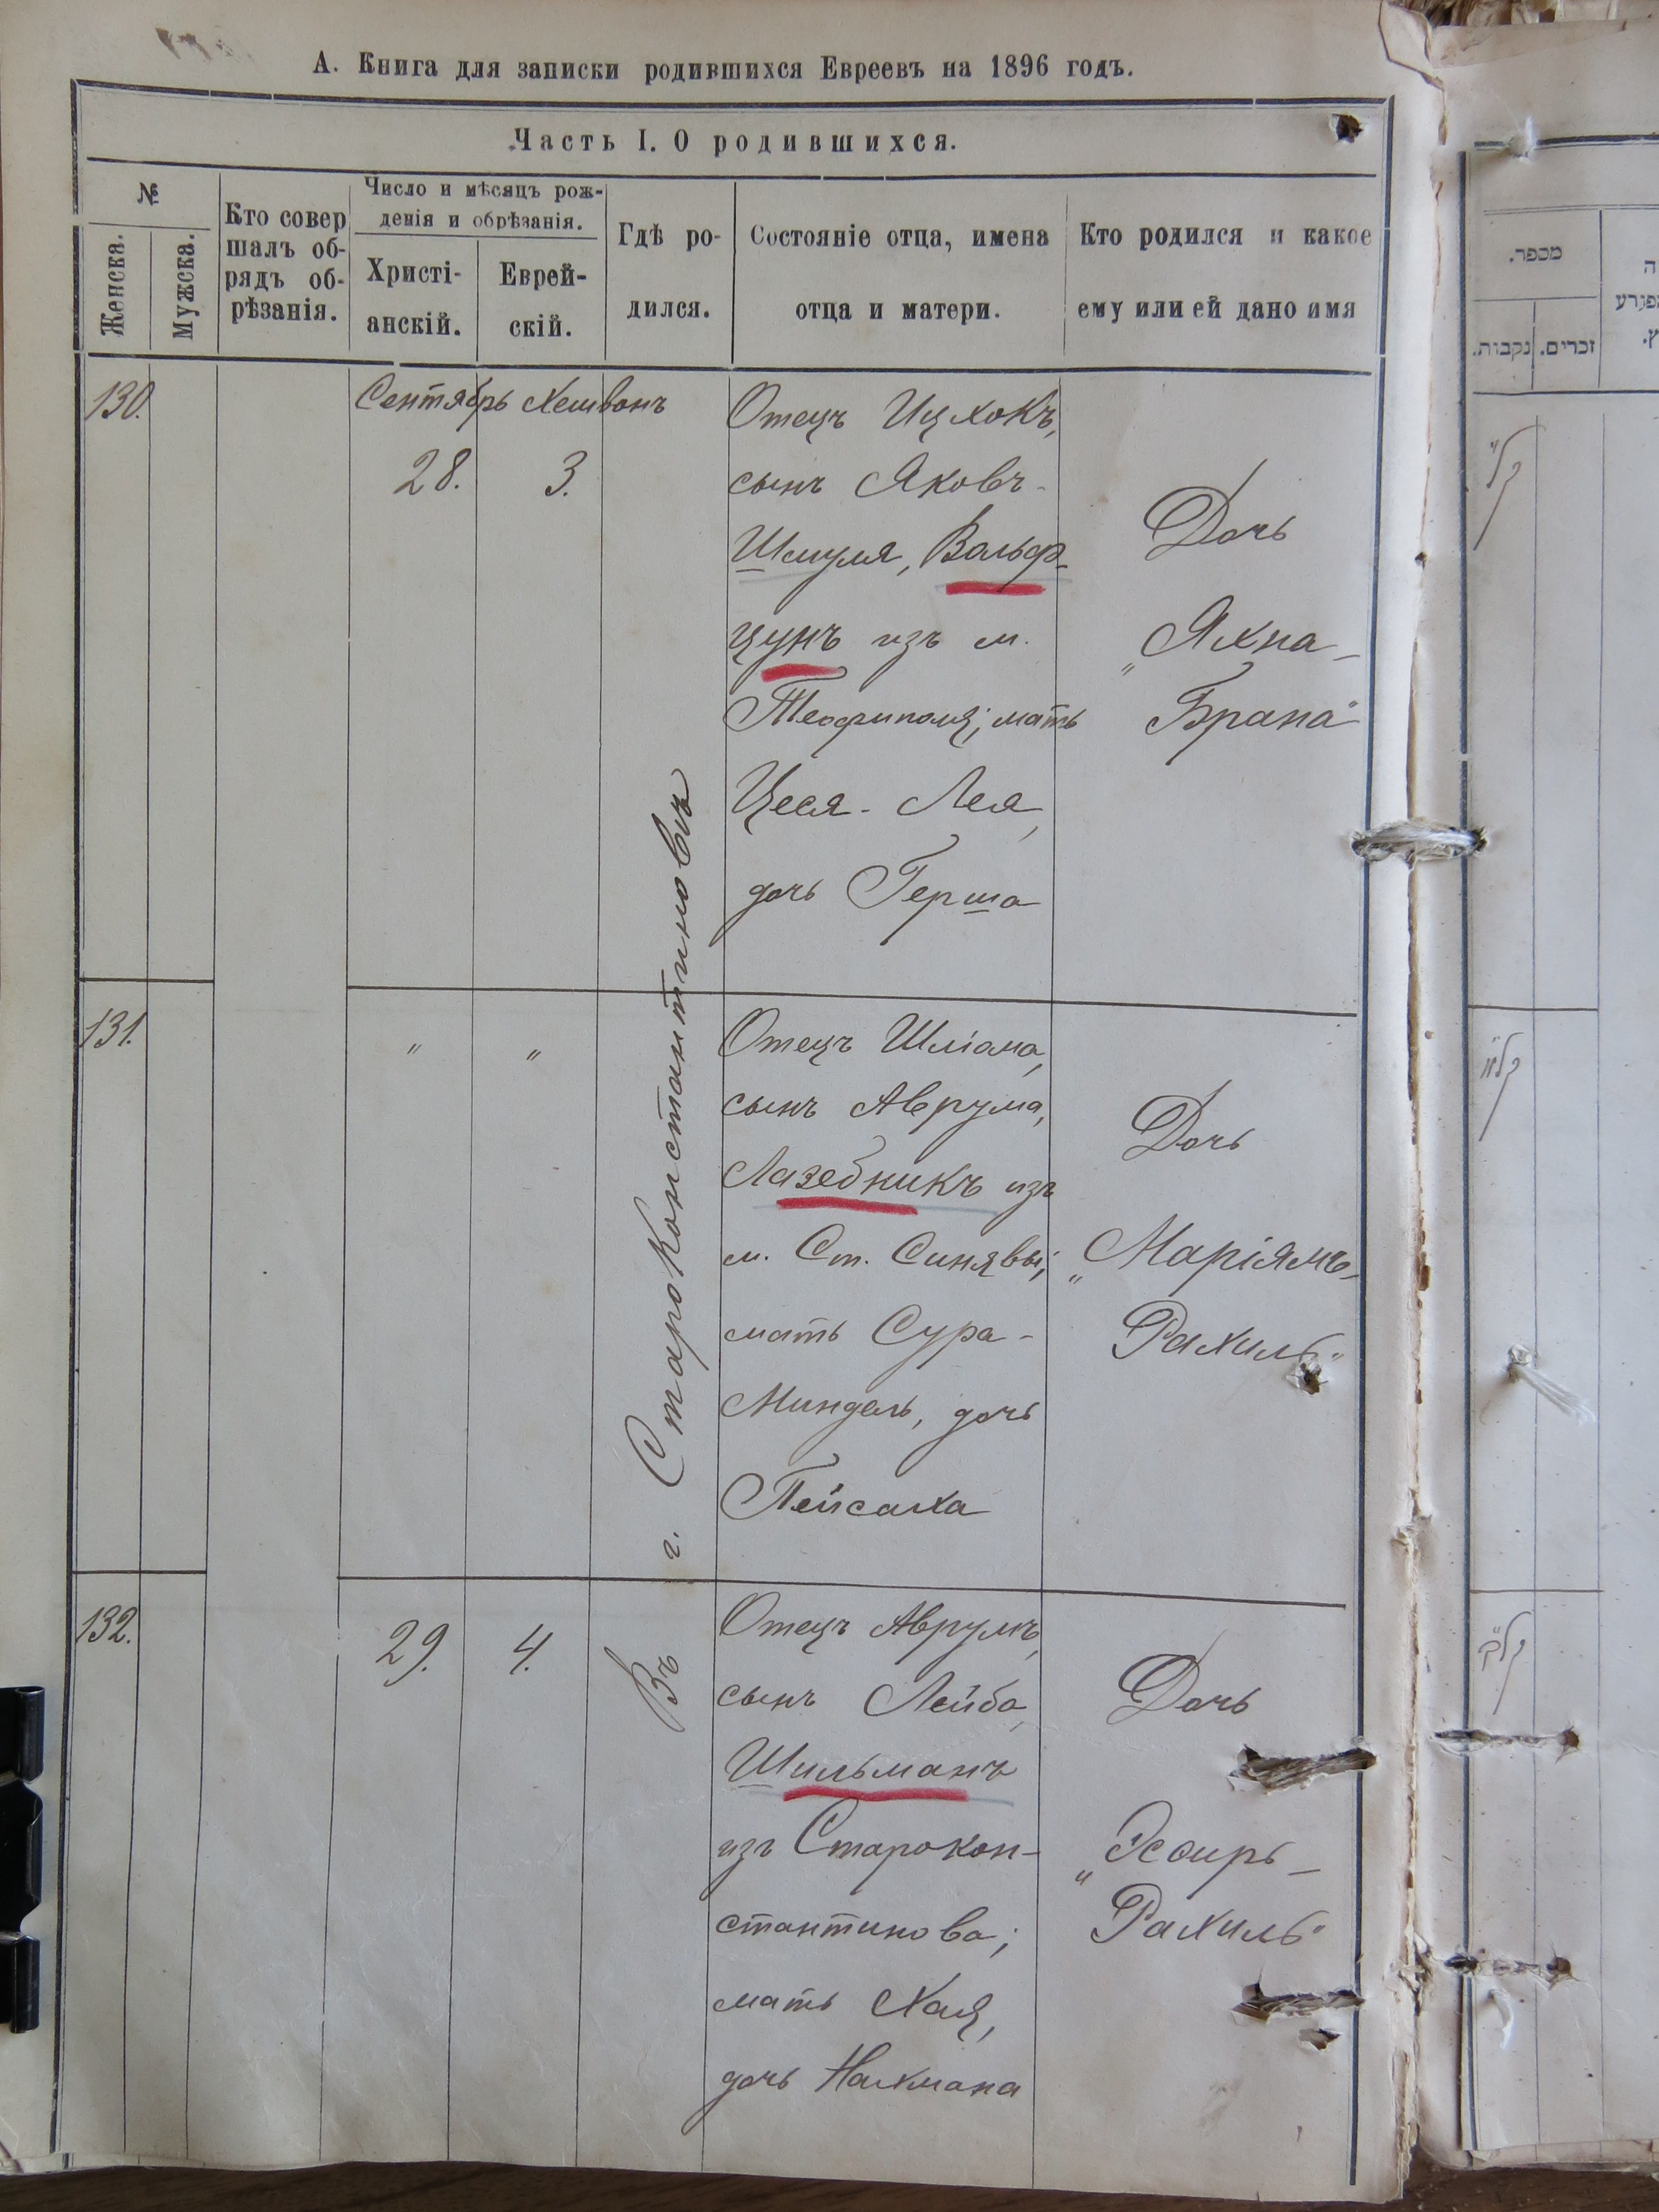 А. Книга для записки родившихся Евреевъ на 1896 годъ.
Часть I. О родившихся.
№
Женска.
Мужска.
Кто совер
шалъ об-
рядъ об-
рѣзанія.
Число и мѣсяцъ рож-
денія и обрѣзанія.
Христі-
анскій.
Еврей-
скій.
Гдѣ ро-
дился.
Состояніе отца, имена
отца и матери.
Кто родился и какое
ему или ей дано имя
130.
Сентябрь Хешвонъ
28. 3.
Въ г. Староконстантиновѣ
Отецъ Ицхокъ,
сынъ Яковъ-
Шмуля, Вольф-
цунъ изъ м.
Теофиполя; мать
Цеся-Лея,
дочь Герша
Дочь
„Яхна-
Брана"
131.
" "
Отецъ Шліома,
сынъ Аврума,
Лазебникъ изъ
м. Ст. Синявы;
мать Сура-
Миндель, дочь
Пейсаха
Дочь
„Маріямъ-
Рахиль"
132.
29. 4.
Отецъ Аврумъ,
сынъ Лейба,
Шильманъ
изъ Старокон-
стантинова;
мать Хая,
дочь Нахмана
Дочь
„Эсѳирь-
Рахиль"
מספר.
נקבות.
זכרים.
ק״ל
קל״א
קל״ב